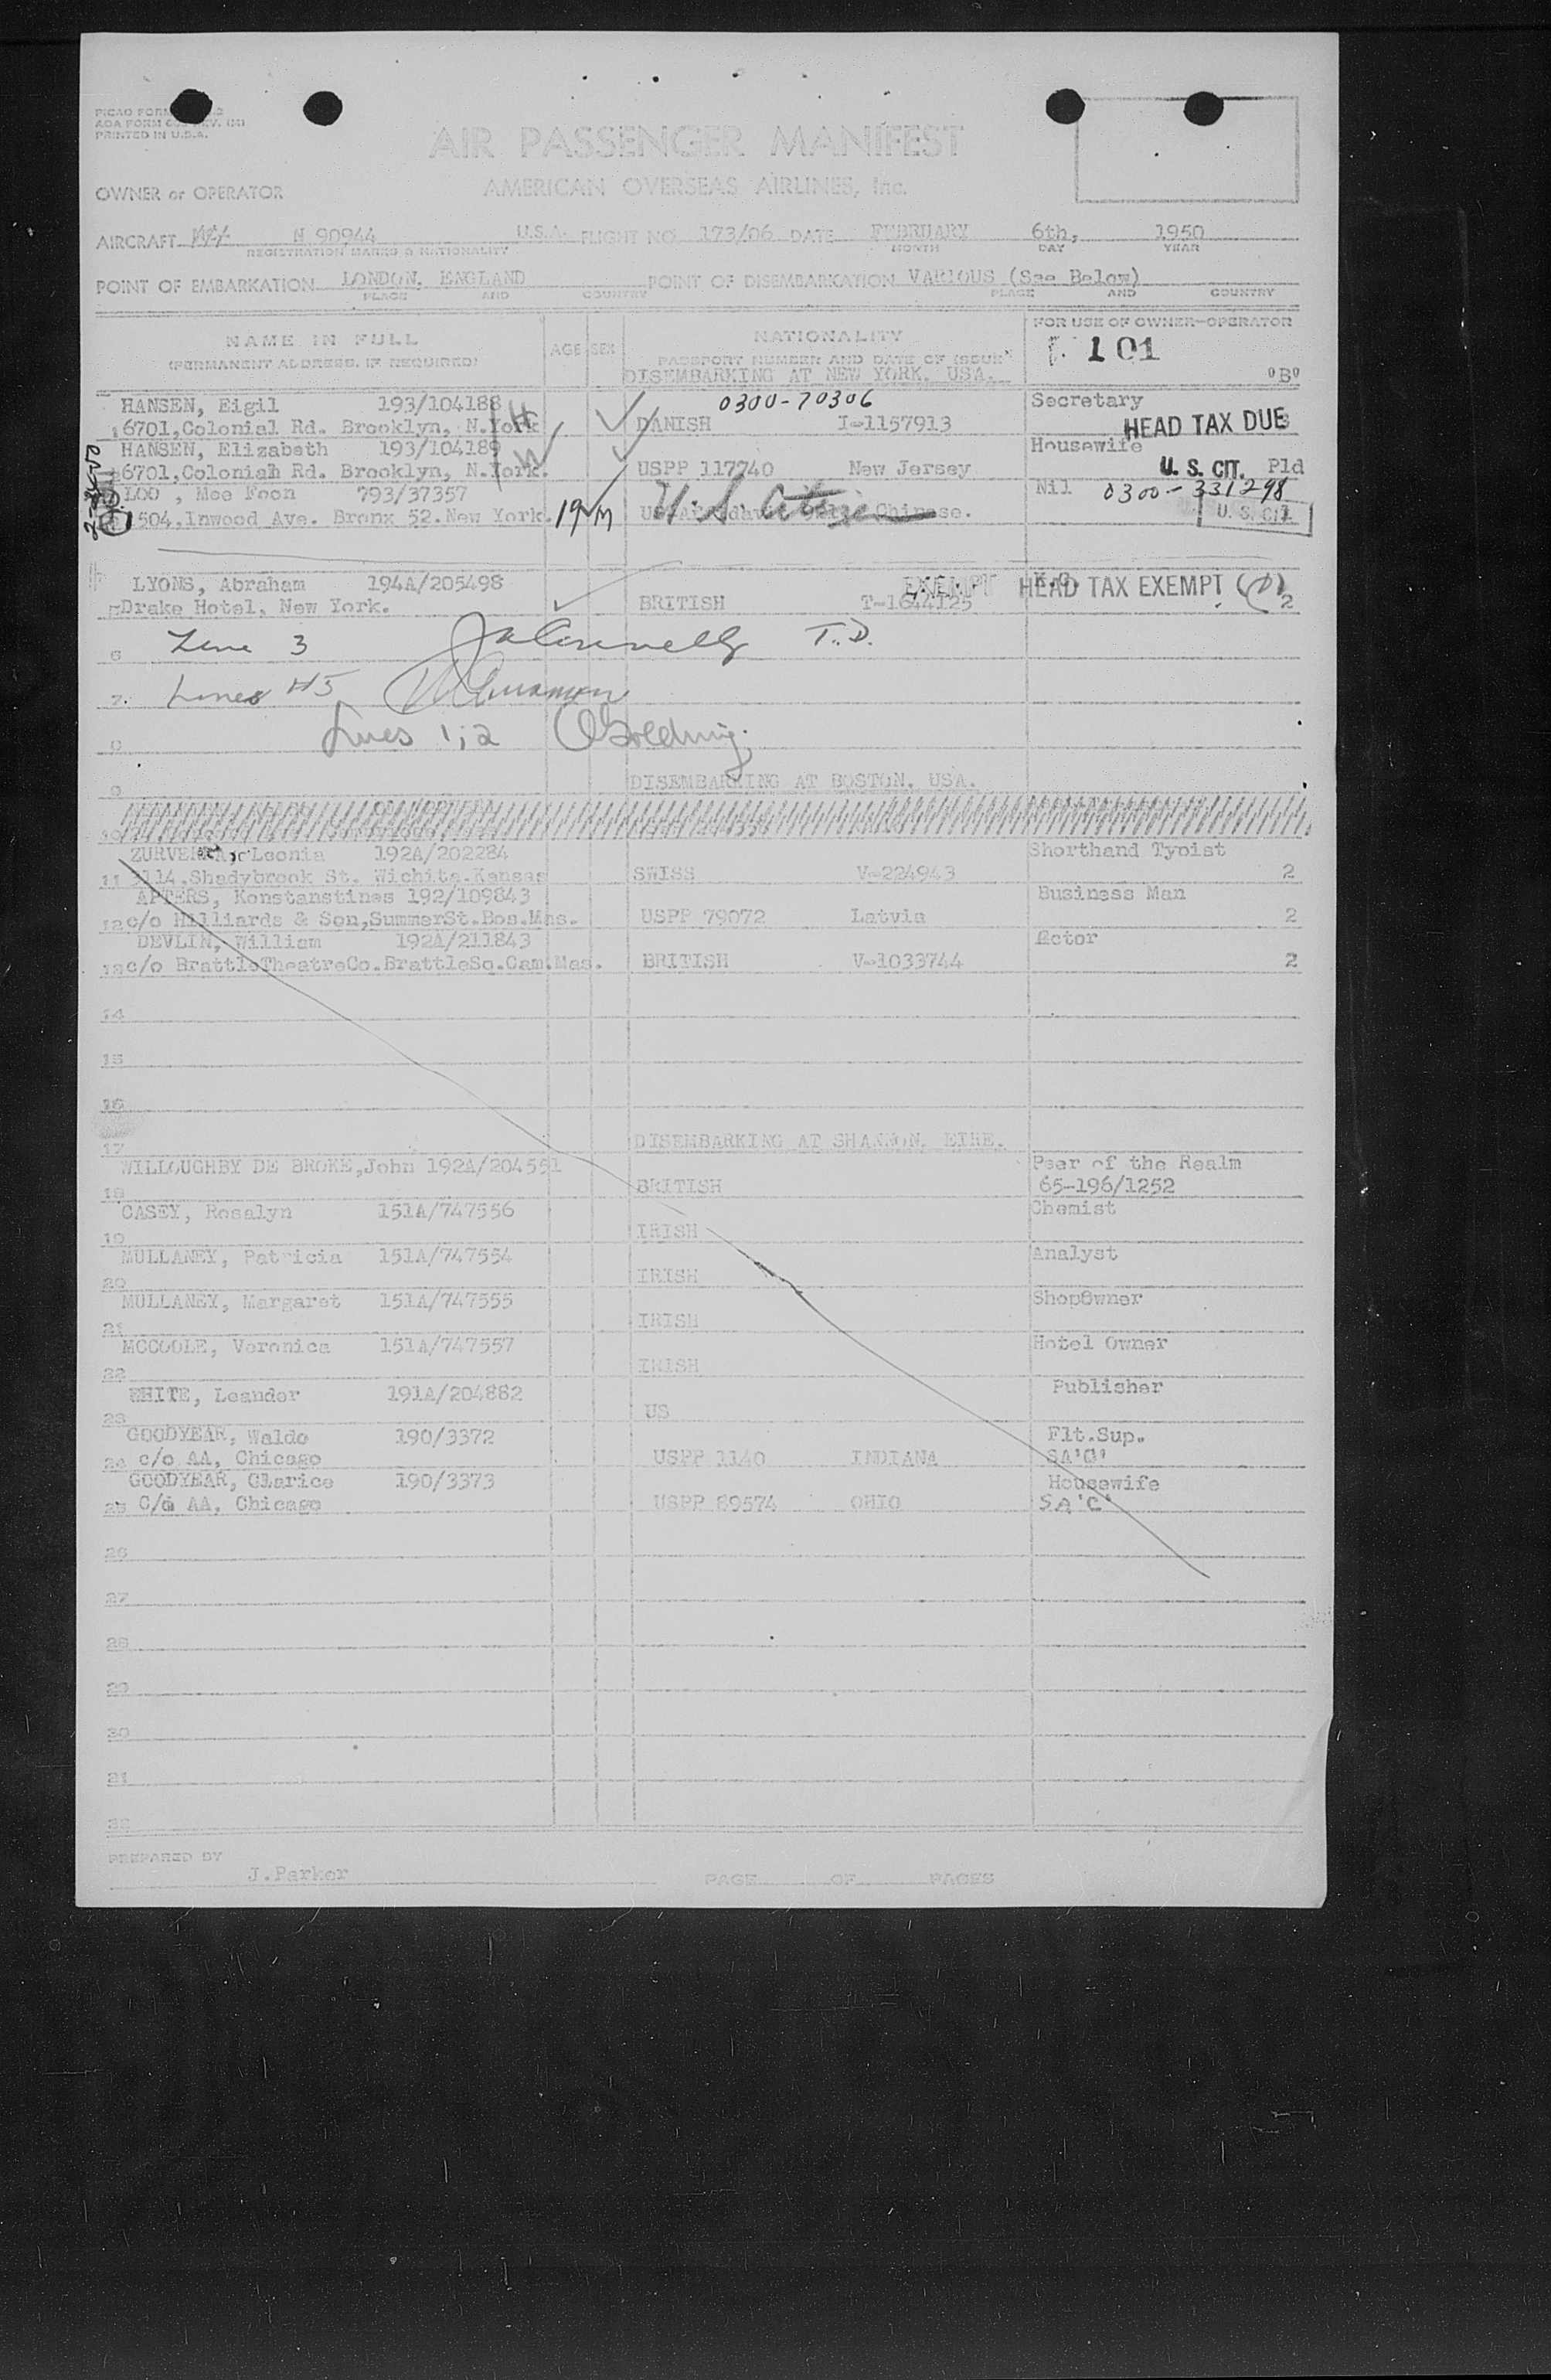 PRINTED IN U.S.A.
AIR PASSENGER MANIFEST
AMERICAN OVERSEAS AIRLINES, Inc.
OWNER or OPERATOR
AIRCRAFT N 90944 U.S.A. FLIGHT NO. 173/06 DATE FEBRUARY 6th, 1950
REGISTRATION MARKS & NATIONALITY MONTH DAY YEAR
POINT OF EMBARKATION LONDON, ENGLAND POINT OF DISEMBARKATION VARIOUS (See Below)
PLACE AND COUNTRY PLACE AND COUNTRY
NAME IN FULL AGE SEX NATIONALITY FOR USE OF OWNER-OPERATOR
(PERMANENT ADDRESS, IF REQUIRED) PASSPORT NUMBER AND DATE OF ISSUE 101
DISEMBARKING AT NEW YORK, USA. "B"
HANSEN, Eigil 193/104188 H 0300-70306 Secretary
1 6701,Colonial Rd. Brooklyn, N.York DANISH I-1157913 HEAD TAX DUE
HANSEN, Elizabeth 193/104189 W Housewife
6701,Colonial Rd. Brooklyn, N.York. USPP 117740 New Jersey U. S. CIT. Pld
LOO , Mee Foon 793/37357 Nil 0300-331298
1504,Inwood Ave. Bronx 52.New York. 19 M U.S. Citizen Chinese. U. S. CIT
LYONS, Abraham 194A/205498 EXEMPT HEAD TAX EXEMPT
Drake Hotel, New York. BRITISH T-1644125 2
6 Line 3 T.D.
7 Lines
8 Lines 1,2
9 DISEMBARKING AT BOSTON, USA.
10
Leonia 192A/202284 Shorthand Typist
11 3114,Shadybrook St. Wichita.Kansas SWISS V-224943 2
APTERS, Konstanstines 192/109843 Business Man
12 c/o Hilliards & Son,SummerSt.Bos.Mas. USPP 79072 Latvia 2
DEVLIN, William 192A/211843 Actor
13 c/o BrattleTheatreCo.BrattleSq.Cam.Mas. BRITISH V-1033744 2
14
15
16
17 DISEMBARKING AT SHANNON, EIRE.
WILLOUGHBY DE BROKE,John 192A/204551 Peer of the Realm
18 BRITISH 65-196/1252
CASEY, Rosalyn 151A/747556 Chemist
19 IRISH
MULLANEY, Patricia 151A/747554 Analyst
20 IRISH
MULLANEY, Margaret 151A/747555 ShopOwner
21 IRISH
MCCOOLE, Veronica 151A/747557 Hotel Owner
22 IRISH
WHITE, Leander 191A/204882 Publisher
23 US
GOODYEAR, Waldo 190/3372 Flt.Sup.
24 c/o AA, Chicago USPP 1140 INDIANA SA'C'
GOODYEAR, Clarice 190/3373 Housewife
25 C/o AA, Chicago USPP 89574 OHIO SA'C'
26
27
28
29
30
31
32
PREPARED BY
J.Parker PAGE OF PAGES